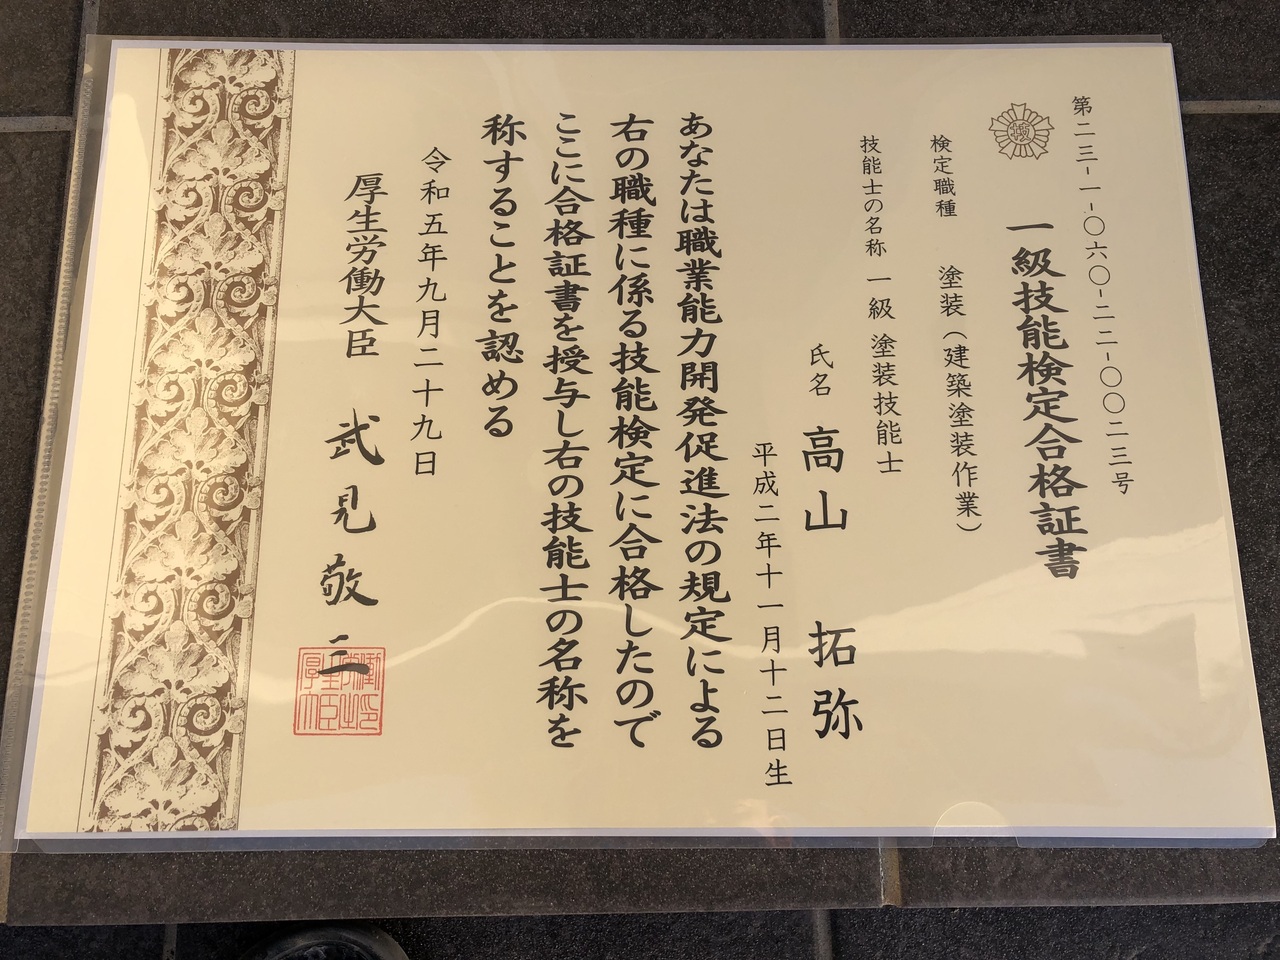 第二三-一-〇六〇-二二-〇〇二三号
技
一級技能検定合格証書
検定職種 塗装(建築塗装作業)
技能士の名称 一級 塗装技能士
氏名 高山 拓弥
平成二年十一月十二日生
あなたは職業能力開発促進法の規定による
右の職種に係る技能検定に合格したので
ここに合格証書を授与し右の技能士の名称を
称することを認める
令和五年九月二十九日
厚生労働大臣 武見敬三